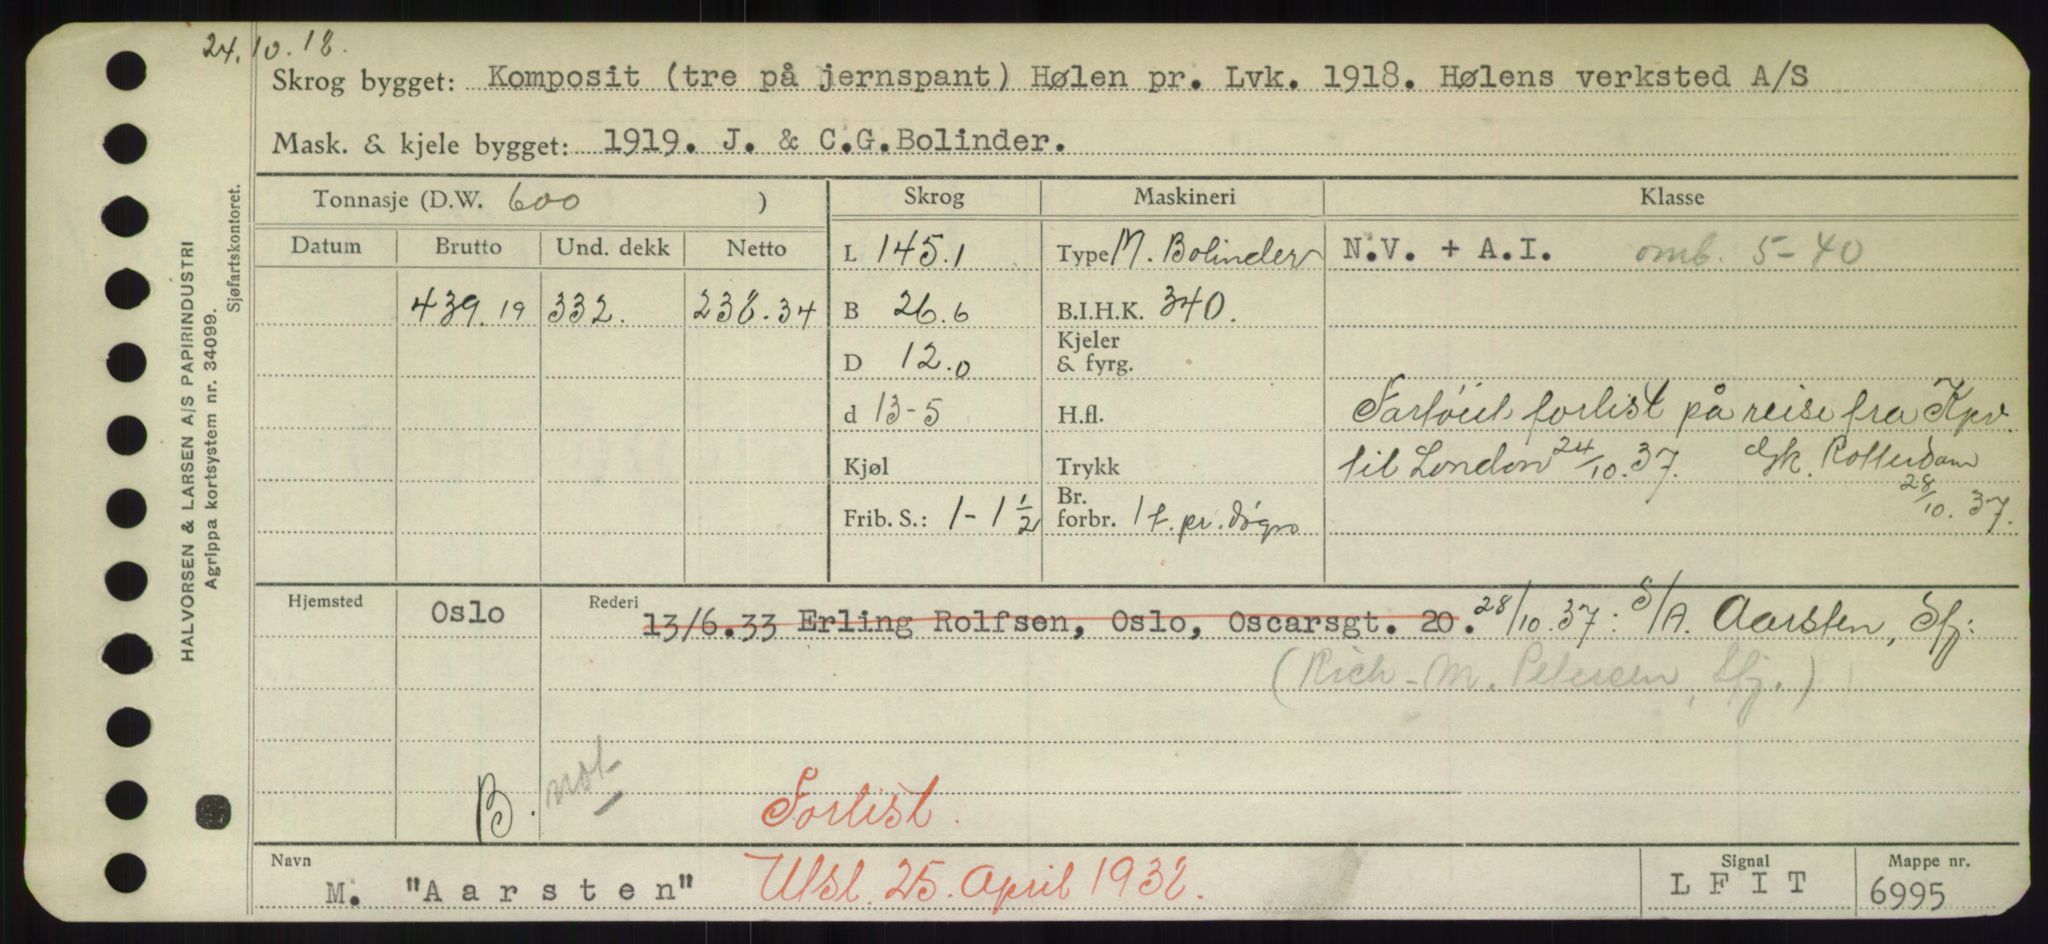 24.10.18.
Skrog bygget: Komposit (tre på jernspant) Hølen pr. Lvk. 1918. Hølens verksted A/S
Mask. & kjele bygget: 1919. J. & C.G.Bolinder.
Tonnasje (D.W. 600 )
Skrog
Maskineri
Klasse
Datum
Brutto
Und. dekk
Netto
L 145.1
Type M. Bolinder
N.V. + A.I. omb. 5-40
439.19
332.
238.34
B 26.6
B.I.H.K. 340.
D 12.0
Kjeler
& fyrg.
d 13-5
H.fl.
Fartöiet forlist på reise fra Kpv.
Kjøl
Trykk
til London 24/10.37. Rotterdam
28/10.37.
Frib. S.: 1-1 1/2
Br.
forbr. 1 t. pr. døgn
Hjemsted
Oslo
Rederi
13/6.33 Erling Rolfsen, Oslo, Oscarsgt. 20. 28/10.37: S/A. Aarsten, Sfj:
(Rich. M. Petersen, Sfj.)
B.
not
Forlist.
Navn
M. "Aarsten"
Utsl. 25. April 1938.
Signal
LFIT
Mappe nr.
6995
HALVORSEN & LARSEN A/S PAPIRINDUSTRI
Agrippa kortsystem nr. 34099.
Sjøfartskontoret.